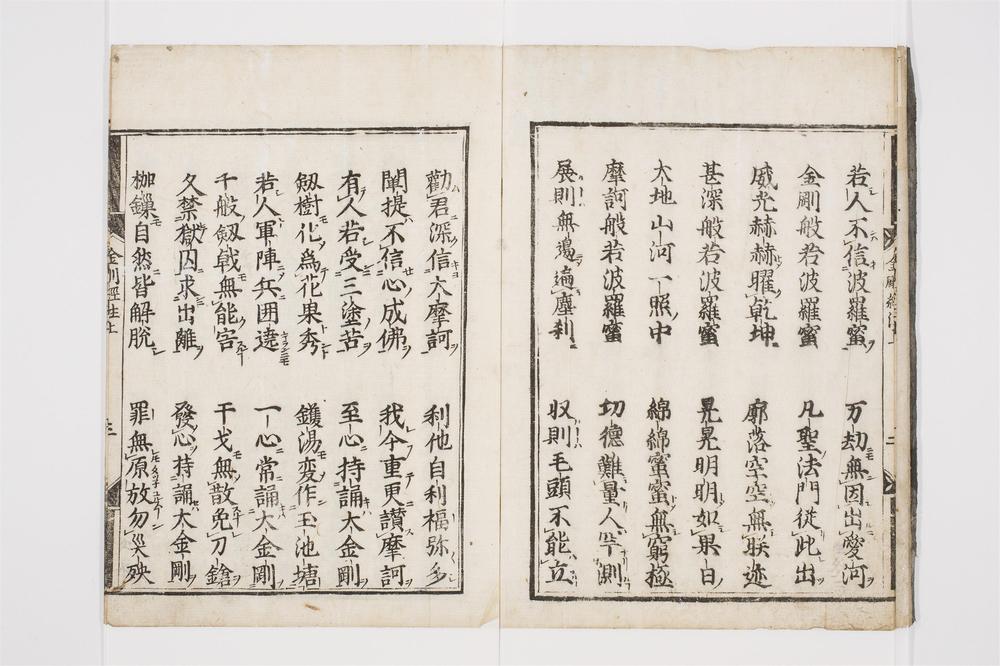 若人不信波羅蜜 万劫無因出愛河
金剛般若波羅蜜 凡聖法門從此出
威光赫赫曜乾坤 廓落空空無朕迹
甚深般若波羅蜜 晃晃明明如果日
大地山河一照中 綿綿蜜蜜無窮極
摩訶般若波羅蜜 切德難量人罕測
展則無邊遍塵刹 収則毛頭不能立
勸君深信大摩訶 利他自利福弥多
闡提不信心成佛 我今重更讃摩訶
有人若受三塗苦 至心持誦大金剛
劔樹化為花果秀 鑊湯変作玉池塘
若人軍陣兵囲遶 一心常誦大金剛
千般劔戟無能害 干戈無散免刀鎗
久禁獄囚求出離 發心持誦大金剛
枷鏁自然皆解脫 罪無原放勿災殃